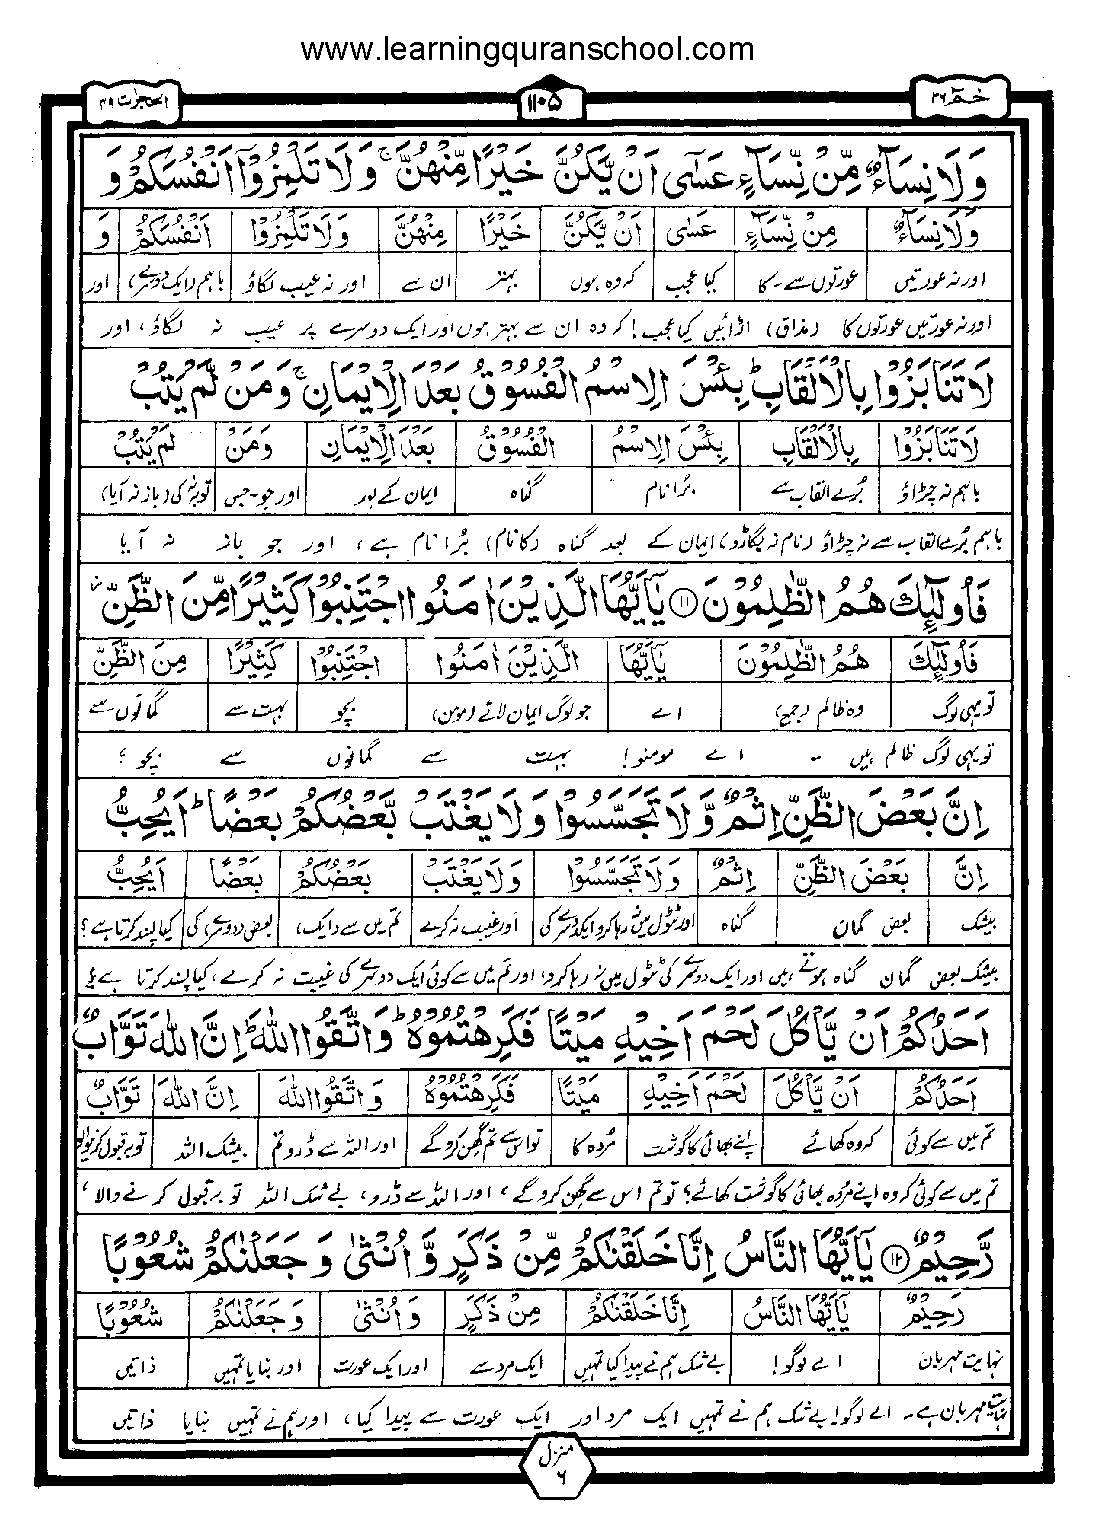 www.learningquranschool.com
الحجرات ٤٩
١١٠٥
حٰمٓ ٢٦
وَلَا نِسَآءٌ مِّنْ نِّسَآءٍ عَسٰٓى اَنْ يَّكُنَّ خَيْرًا مِّنْهُنَّ ۚ وَلَا تَلْمِزُوْٓا اَنْفُسَكُمْ وَ
وَلَا نِسَآءٌ مِنْ نِّسَآءٍ عَسٰٓى اَنْ يَّكُنَّ خَيْرًا مِنْهُنَّ وَلَا تَلْمِزُوْٓا اَنْفُسَكُمْ وَ
اور نہ عورتیں عورتوں سے ۔ کا کیا عجب کہ وہ ہوں بہتر ان سے اور نہ عیب لگاؤ باہم (ایک دوسرے) اور
اور نہ عورتیں عورتوں کا (مذاق) اڑائیں کیا عجب! کہ وہ ان سے بہتر ہوں اور ایک دوسرے پر عیب نہ لگاؤ، اور
لَا تَنَابَزُوْا بِالْاَلْقَابِ ؕ بِئْسَ الِاسْمُ الْفُسُوْقُ بَعْدَ الْاِيْمَانِ ۚ وَمَنْ لَّمْ يَتُبْ
لَا تَنَابَزُوْا بِالْاَلْقَابِ بِئْسَ الِاسْمُ الْفُسُوْقُ بَعْدَ الْاِيْمَانِ وَمَنْ لَمْ يَتُبْ
باہم نہ چڑاؤ بُرے القاب سے بُرا نام گناہ ایمان کے بعد اور جو ۔ جس توبہ کی (باز نہ آیا)
باہم بُرے القاب سے نہ چڑاؤ (نام نہ بگاڑو) ایمان کے بعد گناہ (کا نام) بُرا نام ہے، اور جو باز نہ آیا
فَاُولٰٓئِكَ هُمُ الظّٰلِمُوْنَ ۝۱۱ يٰٓاَيُّهَا الَّذِيْنَ اٰمَنُوا اجْتَنِبُوْا كَثِيْرًا مِّنَ الظَّنِّ ۫
فَاُولٰٓئِكَ هُمُ الظّٰلِمُوْنَ يٰٓاَيُّهَا الَّذِيْنَ اٰمَنُوا اجْتَنِبُوْا كَثِيْرًا مِنَ الظَّنِّ
تو یہی لوگ وہ ظالم (جمع) اے جو لوگ ایمان لائے (مومن) بچو بہت سے گمانوں سے
تو یہی لوگ ظالم ہیں ۔ اے مومنو! بہت سے گمانوں سے بچو ؛
اِنَّ بَعْضَ الظَّنِّ اِثْمٌ وَّلَا تَجَسَّسُوْا وَلَا يَغْتَبْ بَّعْضُكُمْ بَعْضًا ؕ اَيُحِبُّ
اِنَّ بَعْضَ الظَّنِّ اِثْمٌ وَلَا تَجَسَّسُوْا وَلَا يَغْتَبْ بَعْضُكُمْ بَعْضًا اَيُحِبُّ
بیشک بعض گمان گناہ اور ٹٹول میں نہ رہا کرو ایک دوسرے کی اور غیبت نہ کرے تم میں سے (ایک) بعض (دوسرے) کی کیا پسند کرتا ہے؟
بیشک بعض گمان گناہ ہوتے ہیں اور ایک دوسرے کی ٹٹول میں نہ رہا کرو، اور تم میں سے کوئی ایک دوسرے کی غیبت نہ کرے، کیا پسند کرتا ہے
اَحَدُكُمْ اَنْ يَّاْكُلَ لَحْمَ اَخِيْهِ مَيْتًا فَكَرِهْتُمُوْهُ ؕ وَاتَّقُوا اللّٰهَ ؕ اِنَّ اللّٰهَ تَوَّابٌ
اَحَدُكُمْ اَنْ يَّاْكُلَ لَحْمَ اَخِيْهِ مَيْتًا فَكَرِهْتُمُوْهُ وَاتَّقُوا اللّٰهَ اِنَّ اللّٰهَ تَوَّابٌ
تم میں سے کوئی کہ وہ کھائے اپنے بھائی کا گوشت مُردہ کا تو اس سے تم گھن کرو گے اور اللہ سے ڈرو تم بیشک اللہ توبہ قبول کرنیوالا
تم میں سے کوئی کہ وہ اپنے مُردہ بھائی کا گوشت کھائے؟ تو تم اس سے گھن کرو گے، اور اللہ سے ڈرو، بے شک اللہ توبہ قبول کرنے والا،
رَّحِيْمٌ ۝۱۲ يٰٓاَيُّهَا النَّاسُ اِنَّا خَلَقْنٰكُمْ مِّنْ ذَكَرٍ وَّاُنْثٰى وَجَعَلْنٰكُمْ شُعُوْبًا
رَحِيْمٌ يٰٓاَيُّهَا النَّاسُ اِنَّا خَلَقْنٰكُمْ مِنْ ذَكَرٍ وَاُنْثٰى وَجَعَلْنٰكُمْ شُعُوْبًا
نہایت مہربان اے لوگو! بے شک ہم نے پیدا کیا تمہیں ایک مرد سے اور ایک عورت اور بنایا تمہیں ذاتیں
نہایت مہربان ہے۔ اے لوگو! بے شک ہم نے تمہیں ایک مرد اور ایک عورت سے پیدا کیا، اور ہم نے تمہیں بنایا ذاتیں
منزل ٦